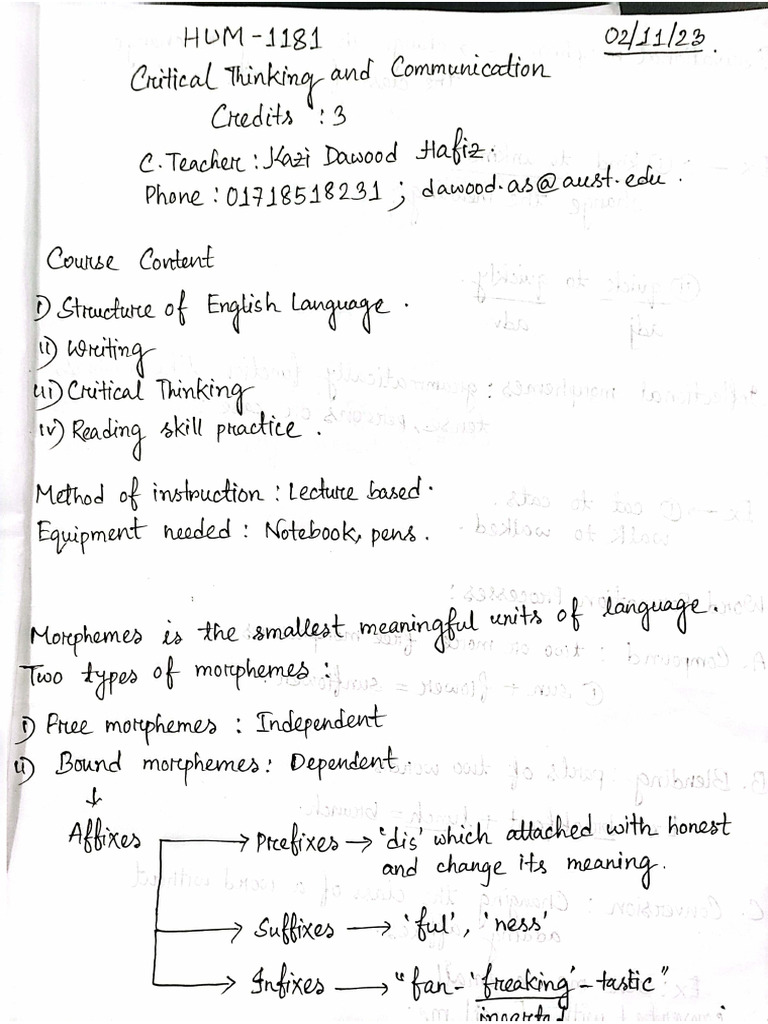 HUM-1181
02/11/23.
Critical Thinking and Communication
Credits : 3
C. Teacher : Kazi Dawood Hafiz.
Phone : 01718518231 ; dawood.as@aust.edu.
Course Content
i) Structure of English Language.
ii) Writing
iii) Critical Thinking
iv) Reading skill practice.
Method of instruction : Lecture based.
Equipment needed : Notebook, pens.
Morphemes is the smallest meaningful units of language.
Two types of morphemes :
i) Free morphemes : Independent
ii) Bound morphemes : Dependent.
↓
Affixes → Prefixes → 'dis' which attached with honest
and change its meaning.
→ Suffixes → 'ful', 'ness'
→ Infixes → "fan-'freaking'-tastic"